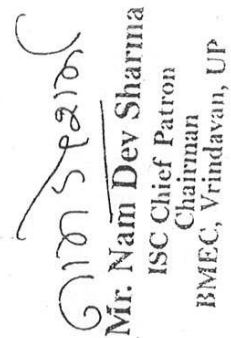 Mr. Nam Dev Sharma
ISC Chief Patron
Chairman
BMEC, Vrindavan, UP